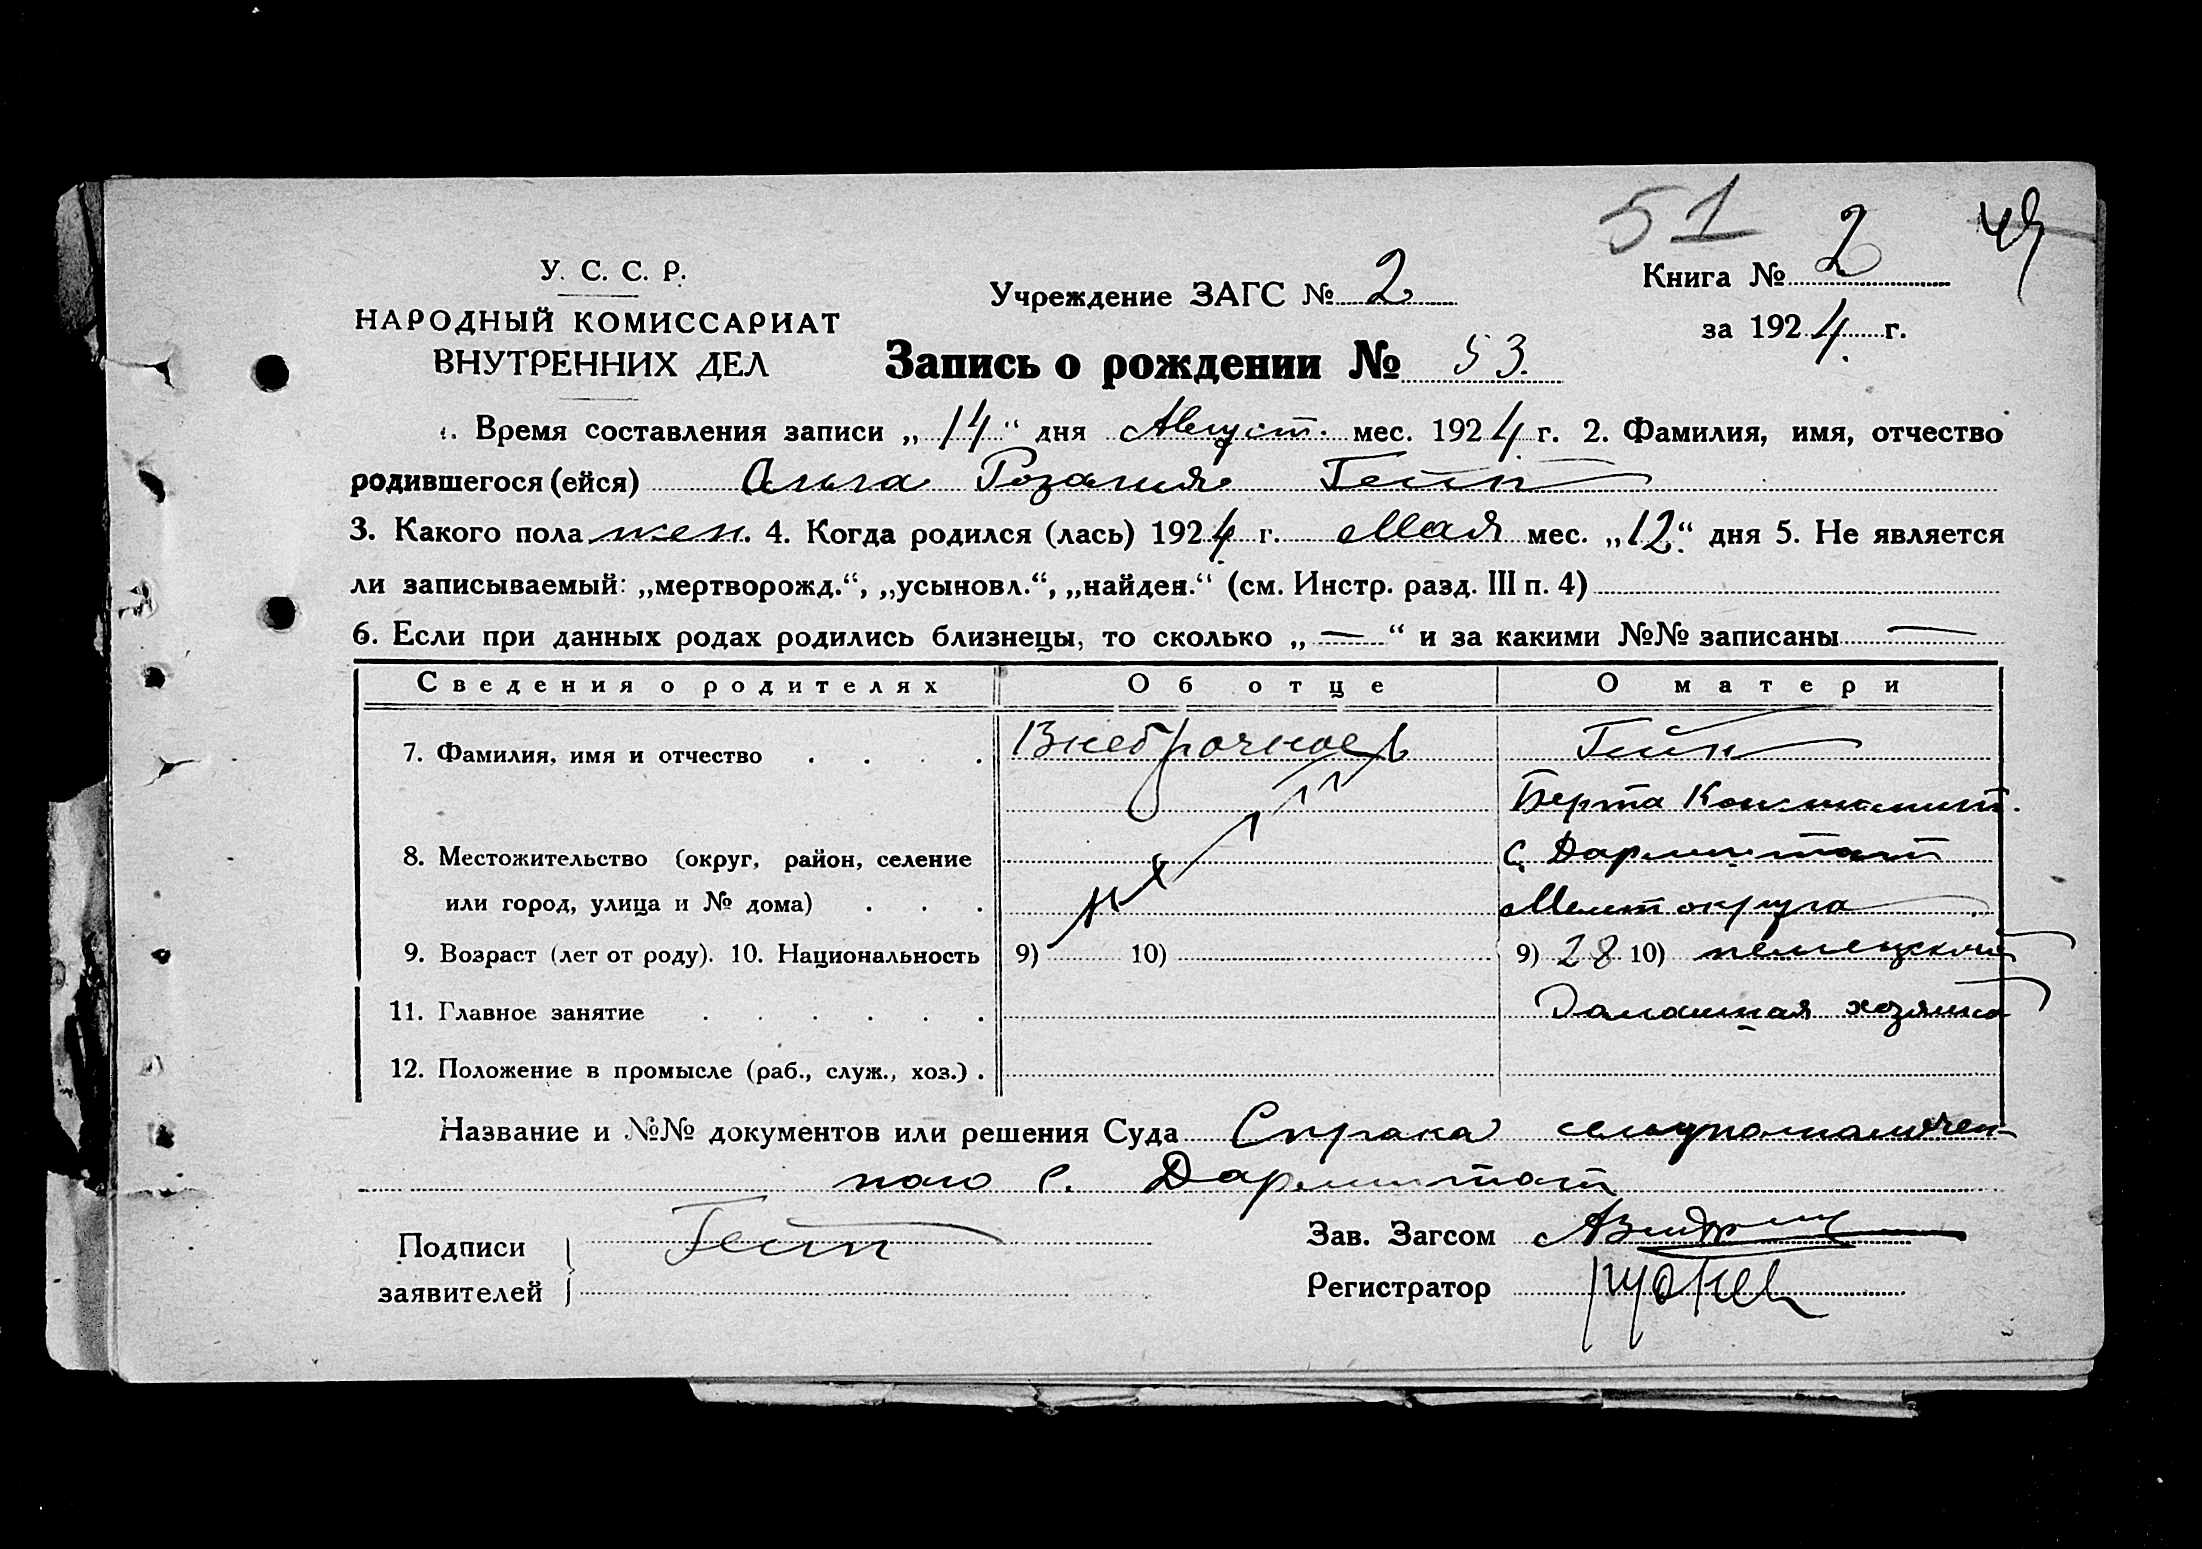 51 2 49
У. С. С. Р.
НАРОДНЫЙ КОМИССАРИАТ
ВНУТРЕННИХ ДЕЛ
Учреждение ЗАГС № 2
Книга № 2
за 1924 г.
Запись о рождении № 53.
1. Время составления записи „14“ дня Август. мес. 1924 г. 2. Фамилия, имя, отчество
родившегося (ейся) Ольга Розалия Гейн
3. Какого пола жен. 4. Когда родился (лась) 1924 г. Мая мес. „12“ дня 5. Не является
ли записываемый: „мертворожд.“, „усыновл.“, „найден.“ (см. Инстр. разд. III п. 4)
6. Если при данных родах родились близнецы, то сколько „—“ и за какими №№ записаны —
Сведения о родителях Об отце О матери
7. Фамилия, имя и отчество . . . . Внебрачное Гейн
Берта Константин.
8. Местожительство (округ, район, селение с. Дармштат
или город, улица и № дома) . . . Мелит округа
9. Возраст (лет от роду). 10. Национальность 9) 10) 9) 28 10) немецкой
11. Главное занятие . . . . . . Домашная хозяйка
12. Положение в промысле (раб., служ., хоз.) .
Название и №№ документов или решения Суда Справка сельуполномочен-
ного с. Дармштат
Подписи
заявителей
Гейн
Зав. Загсом
Регистратор